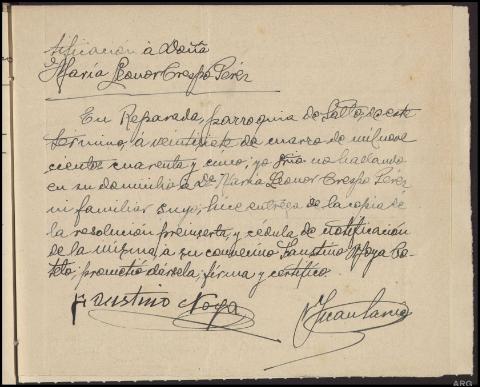 tificación á Doña
María Leonor Crespo Pérez
En Reparada, parroquia de Salto, de este
término, á veintisiete de marzo de mil nove
cientos cuarenta y cinco; yo no hallando
en su domicilio á Dª María Leonor Crespo Pérez
ni familiar suyo, hice entrega de la copia de
la resolución preinserta, y cédula de notificación
de la misma, á su convecino Faustino Noya Bo-
telo; prometió dársela, firma y certifico.
Faustino Noya
Juan
ARG